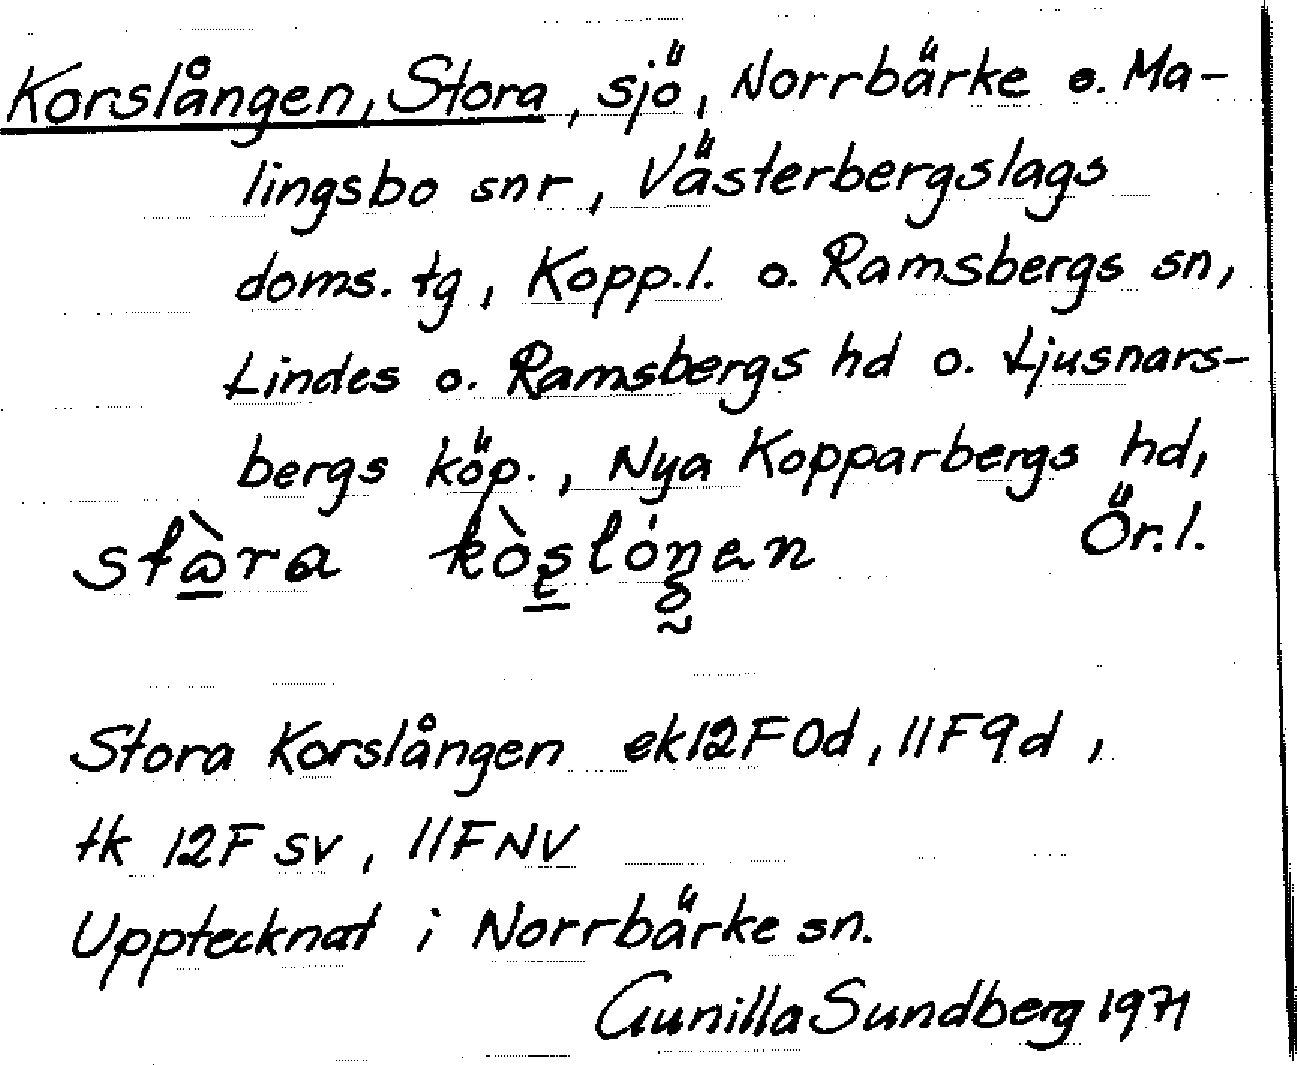 Korslången, Stora, sjö, Norrbärke o. Ma-
lingsbo snr, Västerbergslags
doms. tg, Kopp.l. o. Ramsbergs sn,
Lindes o. Ramsbergs hd o. Ljusnars-
bergs köp., Nya Kopparbergs hd,
Ör.l.
Stora Korslången ek 12F 0d, 11F 9d,
tk 12F SV, 11F NV
Upptecknat i Norrbärke sn.
Gunilla Sundberg 1971